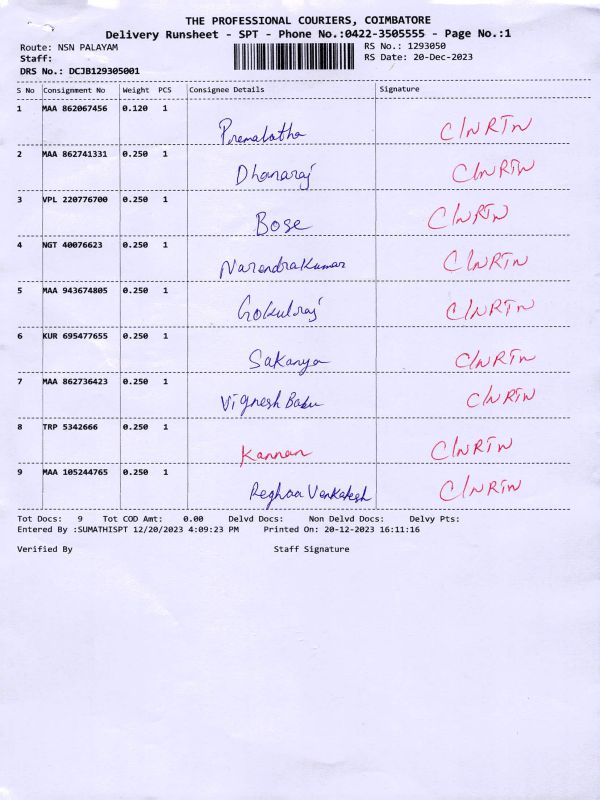 THE PROFESSIONAL COURIERS, COIMBATORE
Delivery Runsheet - SPT - Phone No.:0422-3505555 - Page No.:1
Route: NSN PALAYAM RS No.: 1293050
Staff: RS Date: 20-Dec-2023
DRS No.: DCJB129305001
S No Consignment No Weight PCS Consignee Details Signature
1 MAA 862067456 0.120 1 Premalatha C/NRTN
2 MAA 862741331 0.250 1 Dhanaraj C/NRTN
3 VPL 220776700 0.250 1 Bose C/NRTN
4 NGT 40076623 0.250 1 Narendrakumar C/NRTN
5 MAA 943674805 0.250 1 Gokulraj C/NRTN
6 KUR 695477655 0.250 1 Sakanya C/NRTN
7 MAA 862736423 0.250 1 Vignesh Babu C/NRTN
8 TRP 5342666 0.250 1 Kannan C/NRTN
9 MAA 105244765 0.250 1 Venkatesh C/NRTN
Tot Docs: 9 Tot COD Amt: 0.00 Delvd Docs: Non Delvd Docs: Delvy Pts:
Entered By :SUMATHISPT 12/20/2023 4:09:23 PM Printed On: 20-12-2023 16:11:16
Verified By Staff Signature